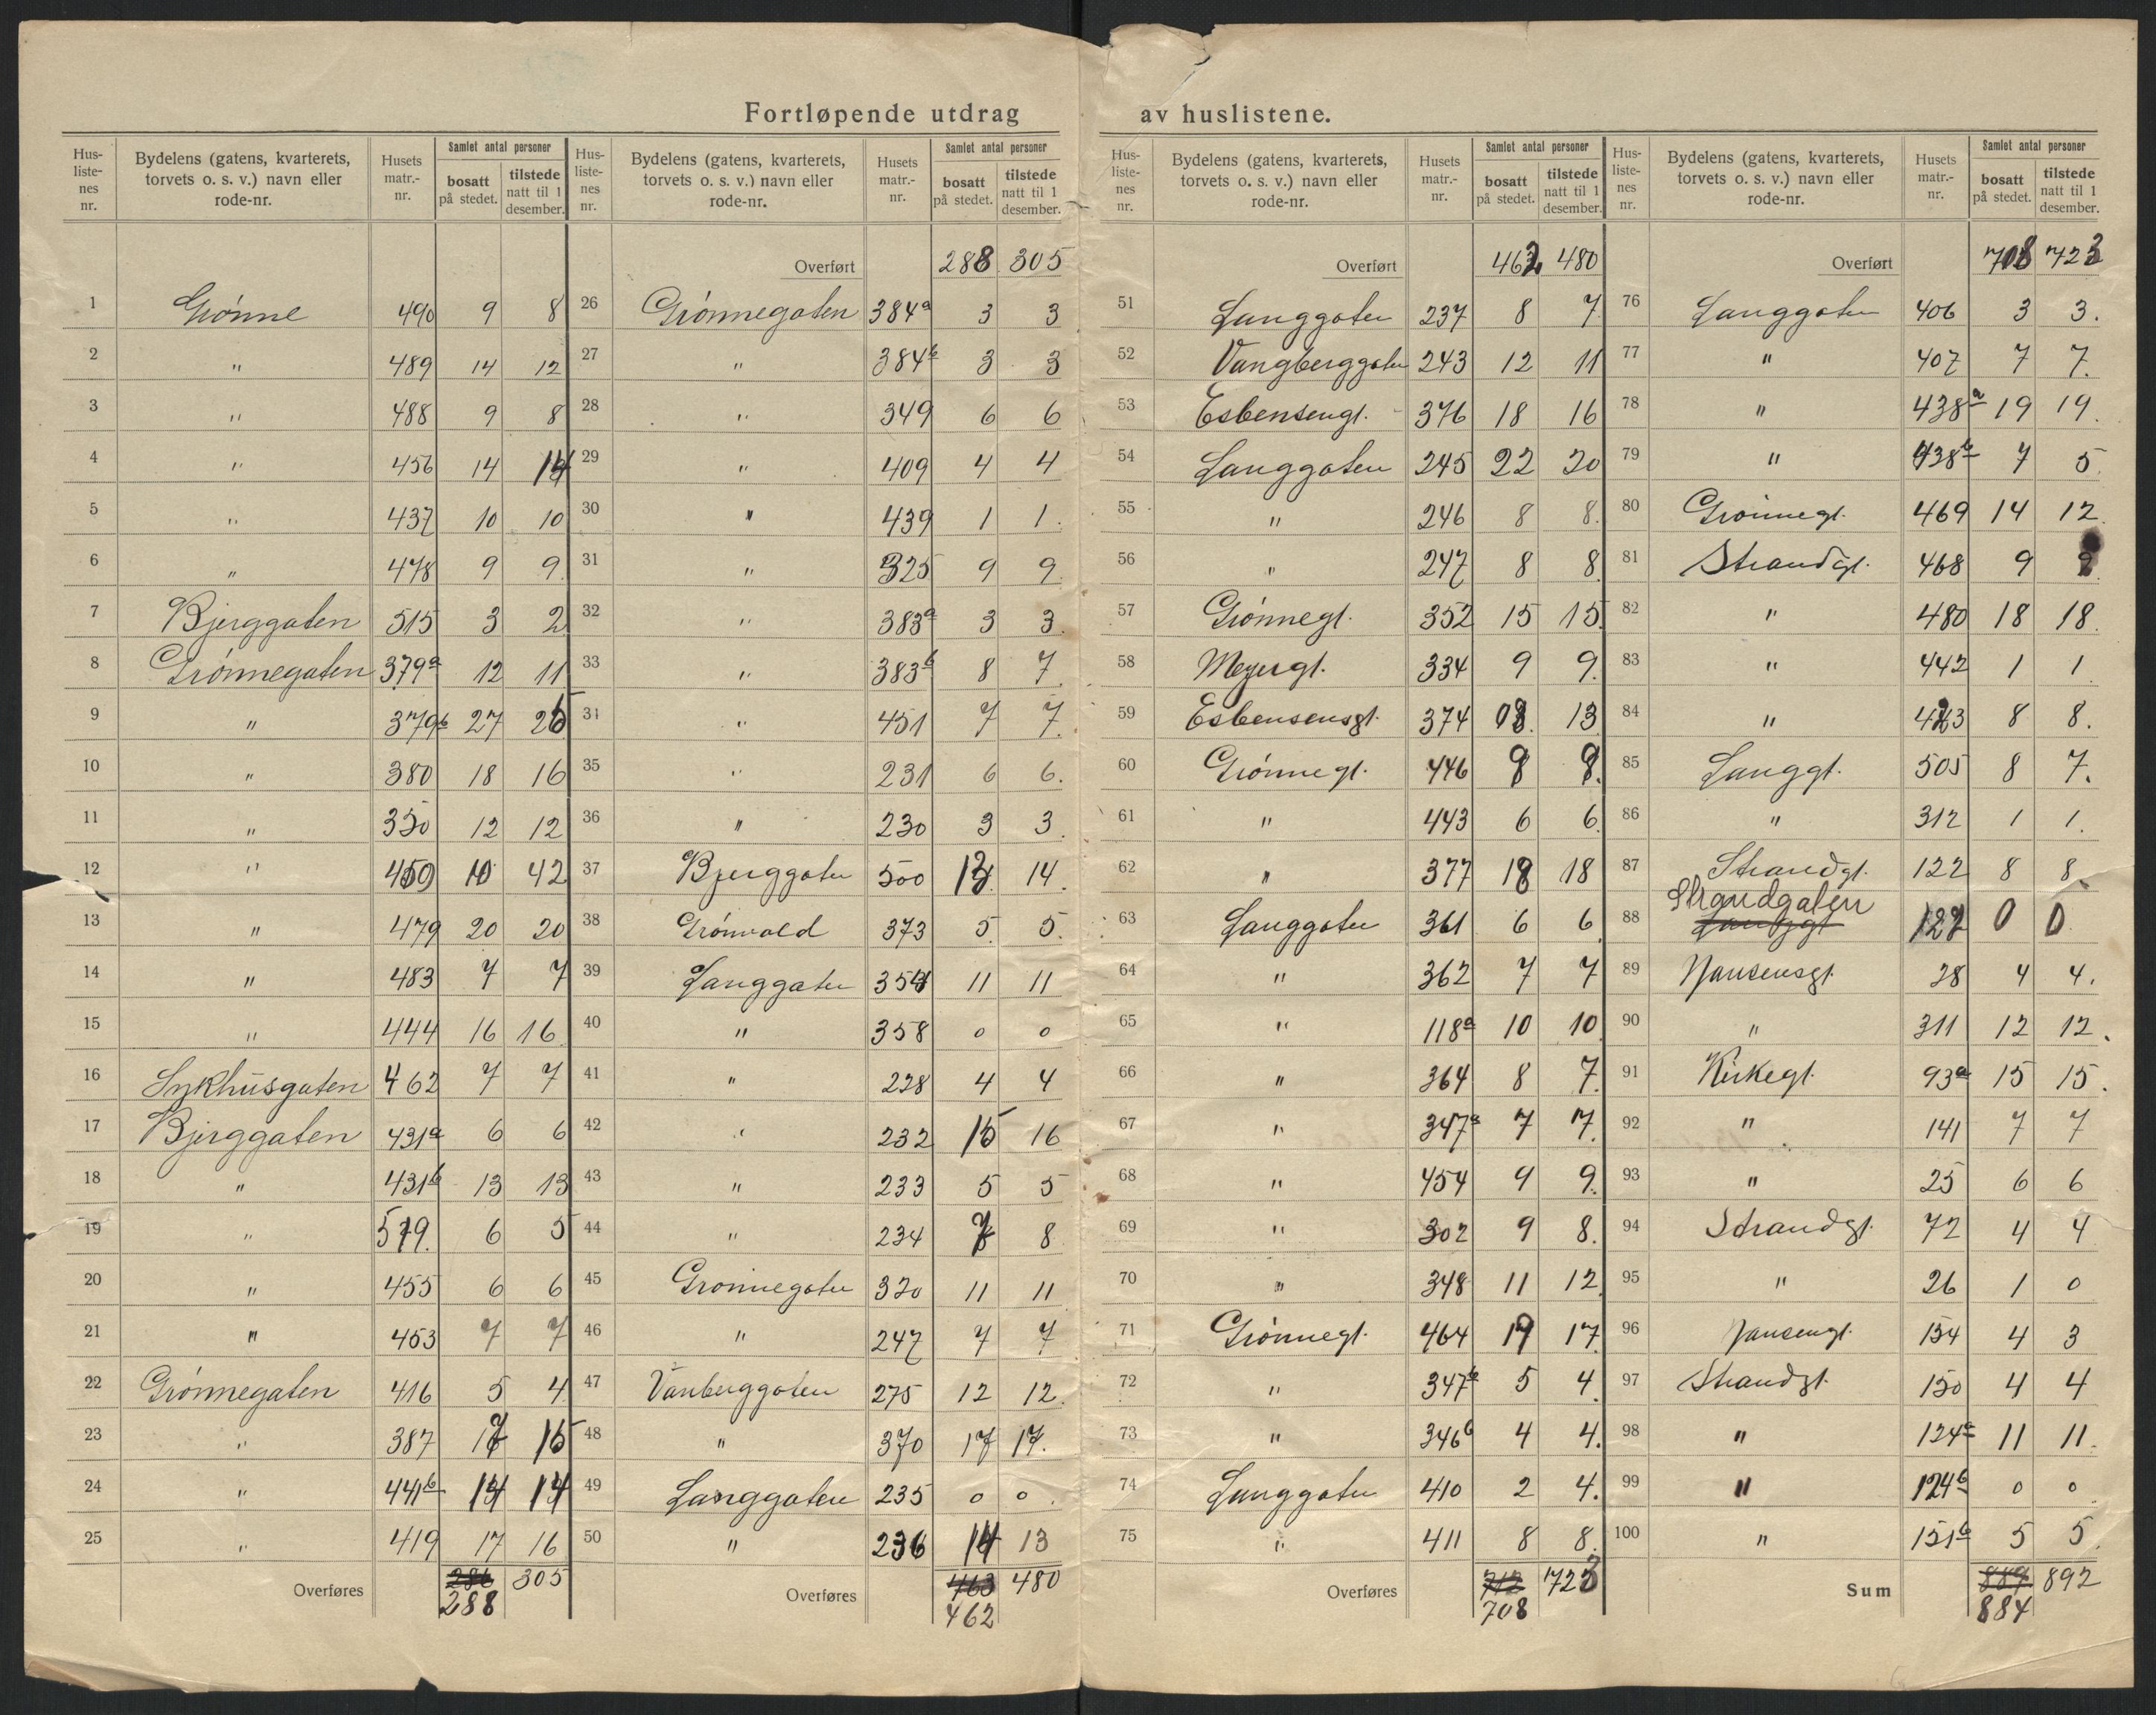 Fortløpende utdrag av huslistene.
Hus-listenes nr. Bydelens (gatens, kvarterets, torvets o. s. v.) navn eller rode-nr. Husets matr.-nr. Samlet antal personer bosatt på stedet. tilstede natt til 1 desember.
1 Grønne 490 9 8
2 " 489 14 12
3 " 488 9 8
4 " 456 14 14
5 " 437 10 10
6 " 478 9 9
7 Bjerggaten 515 3 2
8 Grønnegaten 379a 12 11
9 " 379b 27 25
10 " 380 18 16
11 " 350 12 12
12 " 459 10 42
13 " 479 20 20
14 " 483 7 7
15 " 444 16 16
16 Sykhusgaten 462 7 7
17 Bjerggaten 431a 6 6
18 " 431b 13 13
19 " 519. 6 5
20 " 455 6 6
21 " 453 7 7
22 Grønnegaten 416 5 4
23 " 387 17 15
24 " 441b 14 14
25 " 419 17 16
Overføres 286 305
288
Hus-listenes nr. Bydelens (gatens, kvarterets, torvets o. s. v.) navn eller rode-nr. Husets matr.-nr. Samlet antal personer bosatt på stedet. tilstede natt til 1 desember.
Overført 288 305
26 Grønnegaten 384a 3 3
27 " 384b 3 3
28 " 349 6 6
29 " 409 4 4
30 " 439 1 1
31 " 325 9 9
32 " 383a 3 3
33 " 383b 8 7
34 " 451 7 7
35 " 231 6 6
36 " 230 3 3
37 Bjerggaten 500 13 14
38 Grønvold 373 5 5
39 Langgaten 354 11 11
40 " 358 0 0
41 " 228 4 4
42 " 232 15 16
43 " 233 5 5
44 " 234 7 8
45 Grønnegaten 320 11 11
46 " 247 7 7
47 Vanberggaten 275 12 12
48 " 370 17 17.
49 Langgaten 235 0 0
50 " 236 14 13
Overføres 463 480
462
Hus-listenes nr. Bydelens (gatens, kvarterets, torvets o. s. v.) navn eller rode-nr. Husets matr.-nr. Samlet antal personer bosatt på stedet. tilstede natt til 1 desember.
Overført 462 480
51 Langgaten 237 8 7
52 Vangberggaten 243 12 11
53 Esbensengt. 376 18 16
54 Langgaten 245 22 20
55 " 246 8 8.
56 " 247 8 8
57 Grønnegt. 352 15 15
58 Meyergt. 334 9 9
59 Esbensensgt. 374 13 13
60 Grønnegt. 446 9 9.
61 " 443 6 6
62 " 377 18 18
63 Langgaten 361 6 6
64 " 362 7 7
65 " 118a 10 10
66 " 364 8 7.
67 " 347a 7 7.
68 " 454 9 9.
69 " 302 9 8.
70 " 348 11 12
71 Grønnegt. 464 19 17
72 " 347b 5 4
73 " 346b 4 4.
74 Langgaten 410 2 4.
75 " 411 8 8.
Overføres 712 723
708
Hus-listenes nr. Bydelens (gatens, kvarterets, torvets o. s. v.) navn eller rode-nr. Husets matr.-nr. Samlet antal personer bosatt på stedet. tilstede natt til 1 desember.
Overført 708 723
76 Langgaten 406 3 3.
77 " 407 7 7.
78 " 438a 19 19.
79 " 438b 7 5
80 Grønnegt. 469 14 12
81 Strandgt. 468 9 9.
82 " 480 18 18.
83 " 442 1 1
84 " 423 8 8.
85 Langgt. 505 8 7.
86 " 312 1 1.
87 Strandgt. 122 8 8
88 Strandgaten Langgt 127 0 0
89 Nansensgt. 28 4 4.
90 " 311 12 12.
91 Kirkegt. 93a 15 15.
92 " 141 7 7
93 " 25 6 6
94 Strandgt. 72 4 4
95 " 26 1 0
96 Nansengt. 154 4 3
97 Strandgt. 150 4 4
98 " 124a 11 11.
99 " 124b 0 0
100 " 151b 5 5
Sum 889 892
884